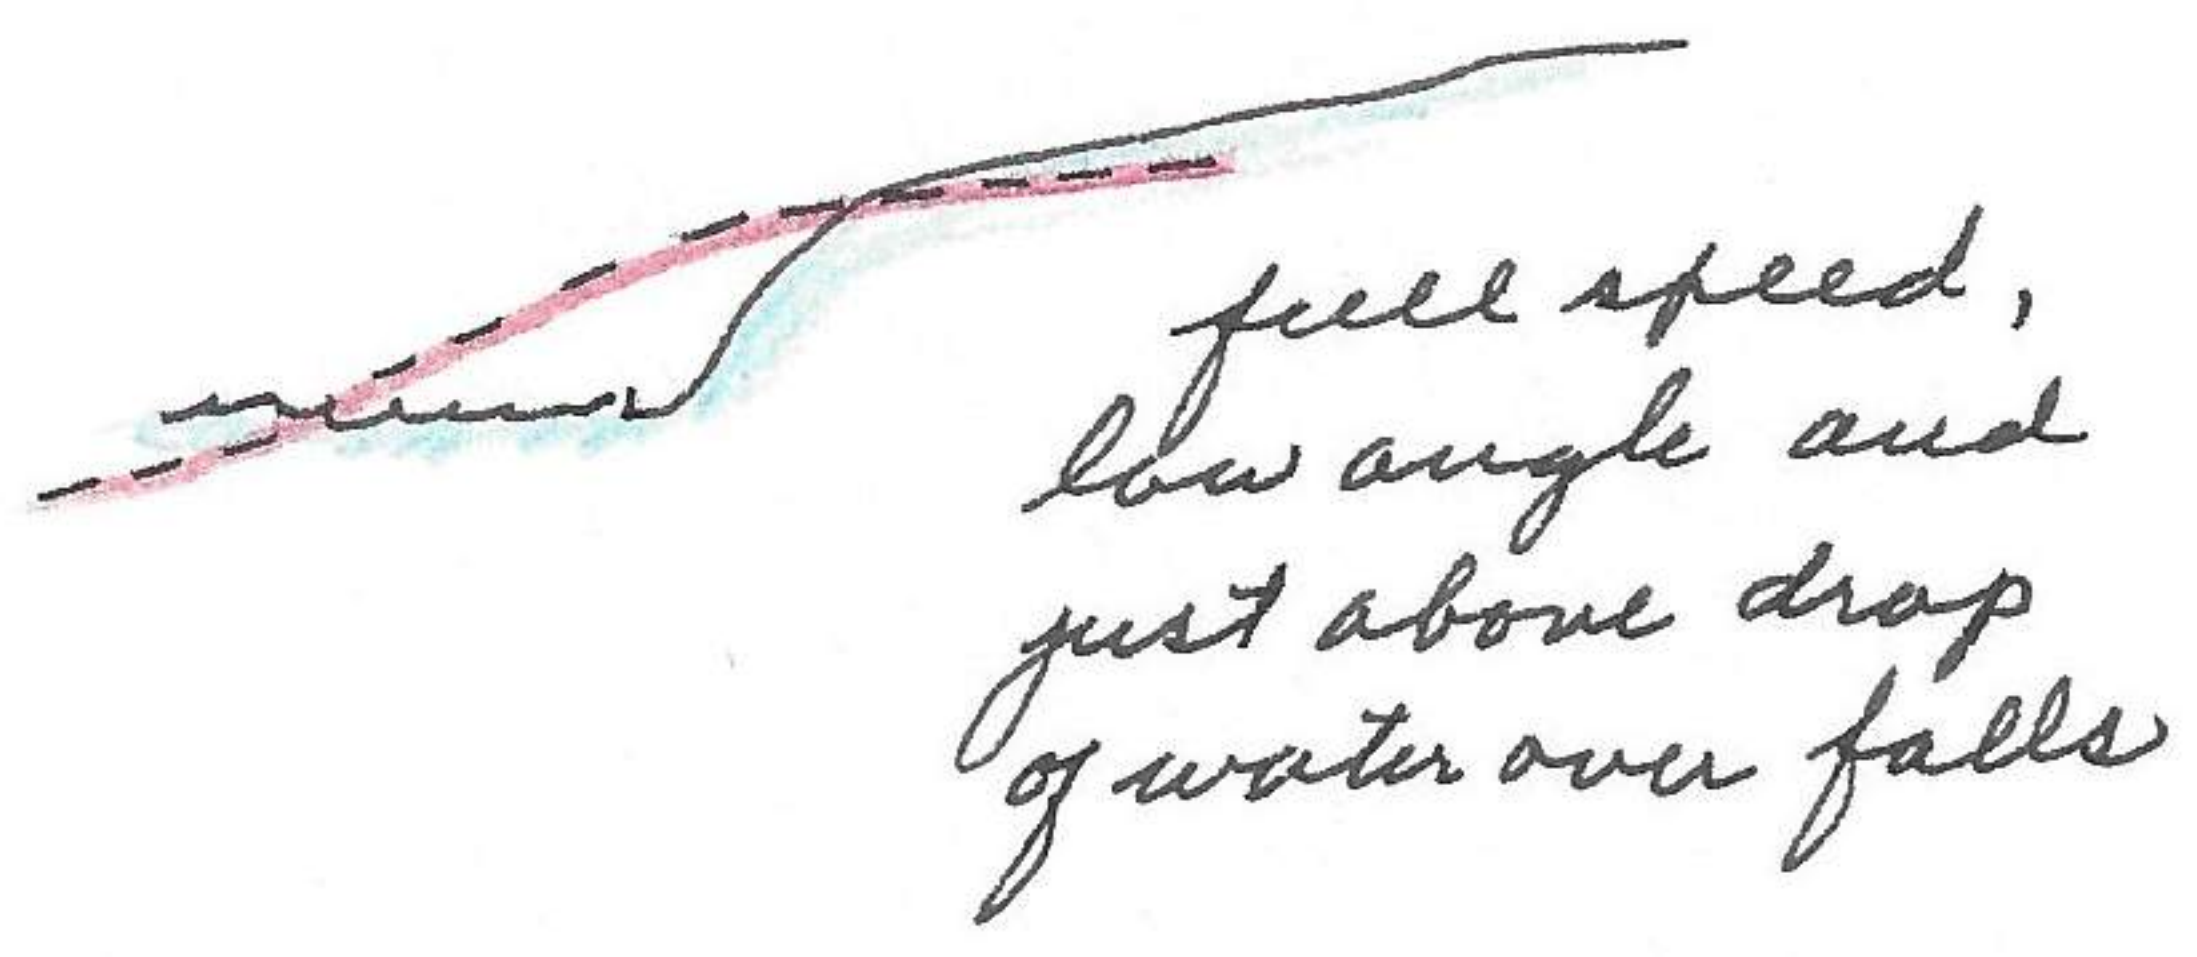 full speed,
low angle and
just above drop
of water over falls